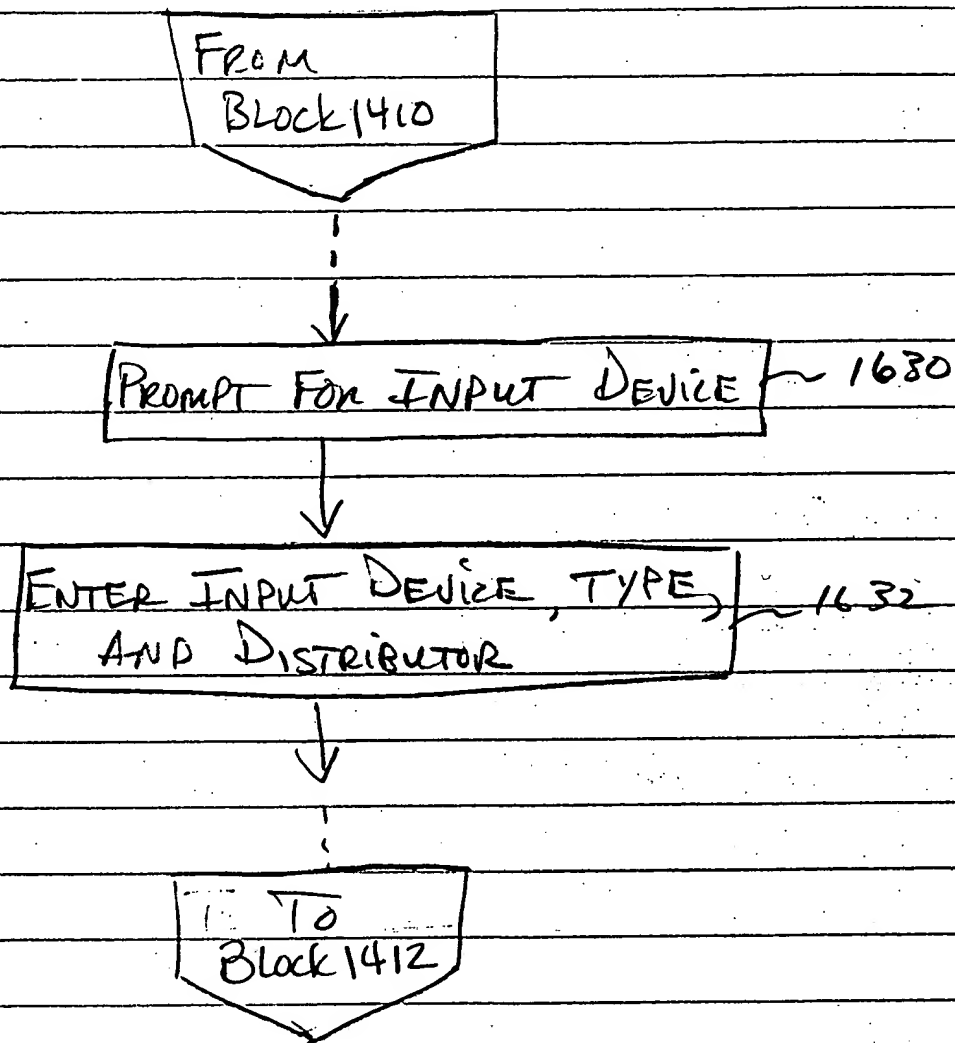 FROM
BLOCK 1410
PROMPT FOR INPUT DEVICE
1630
ENTER INPUT DEVICE, TYPE,
AND DISTRIBUTOR
1632
TO
BLOCK 1412